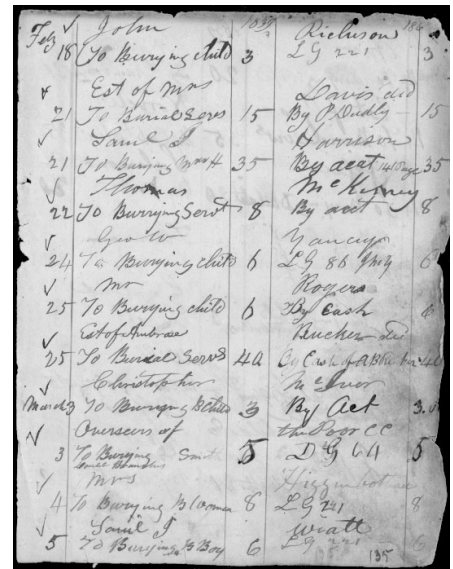 John Richeson
Feb 18 To Burying child 3 L G 221 3
Est of Mrs Davis decd
21 To Burial Servs 15 By P Dudly 15
Saml J Harrison
21 To Burying Mrs H 35 By acct 35
Thomas McKinney
22 To Burrying Servt 8 By acct 8
Geo W Yancy
24 To Burrying child 6 L G 86 6
Mr Rogers
25 To Burying child 6 By Cash 6
Est of Ambrose Rucker decd
25 To Burial Servs 40 By Cash of A B Rucker 40
Christopher McIvor
March 3 To Burying B child 3 By Act 3
Overseers of the Poor CC
3 To Burying 5 D G 61 5
Mrs Higginbotham
4 To Burying B Woman 8 L G 221 8
Saml J Wiatt
5 To Burying B Boy 6 L G 221 6
135